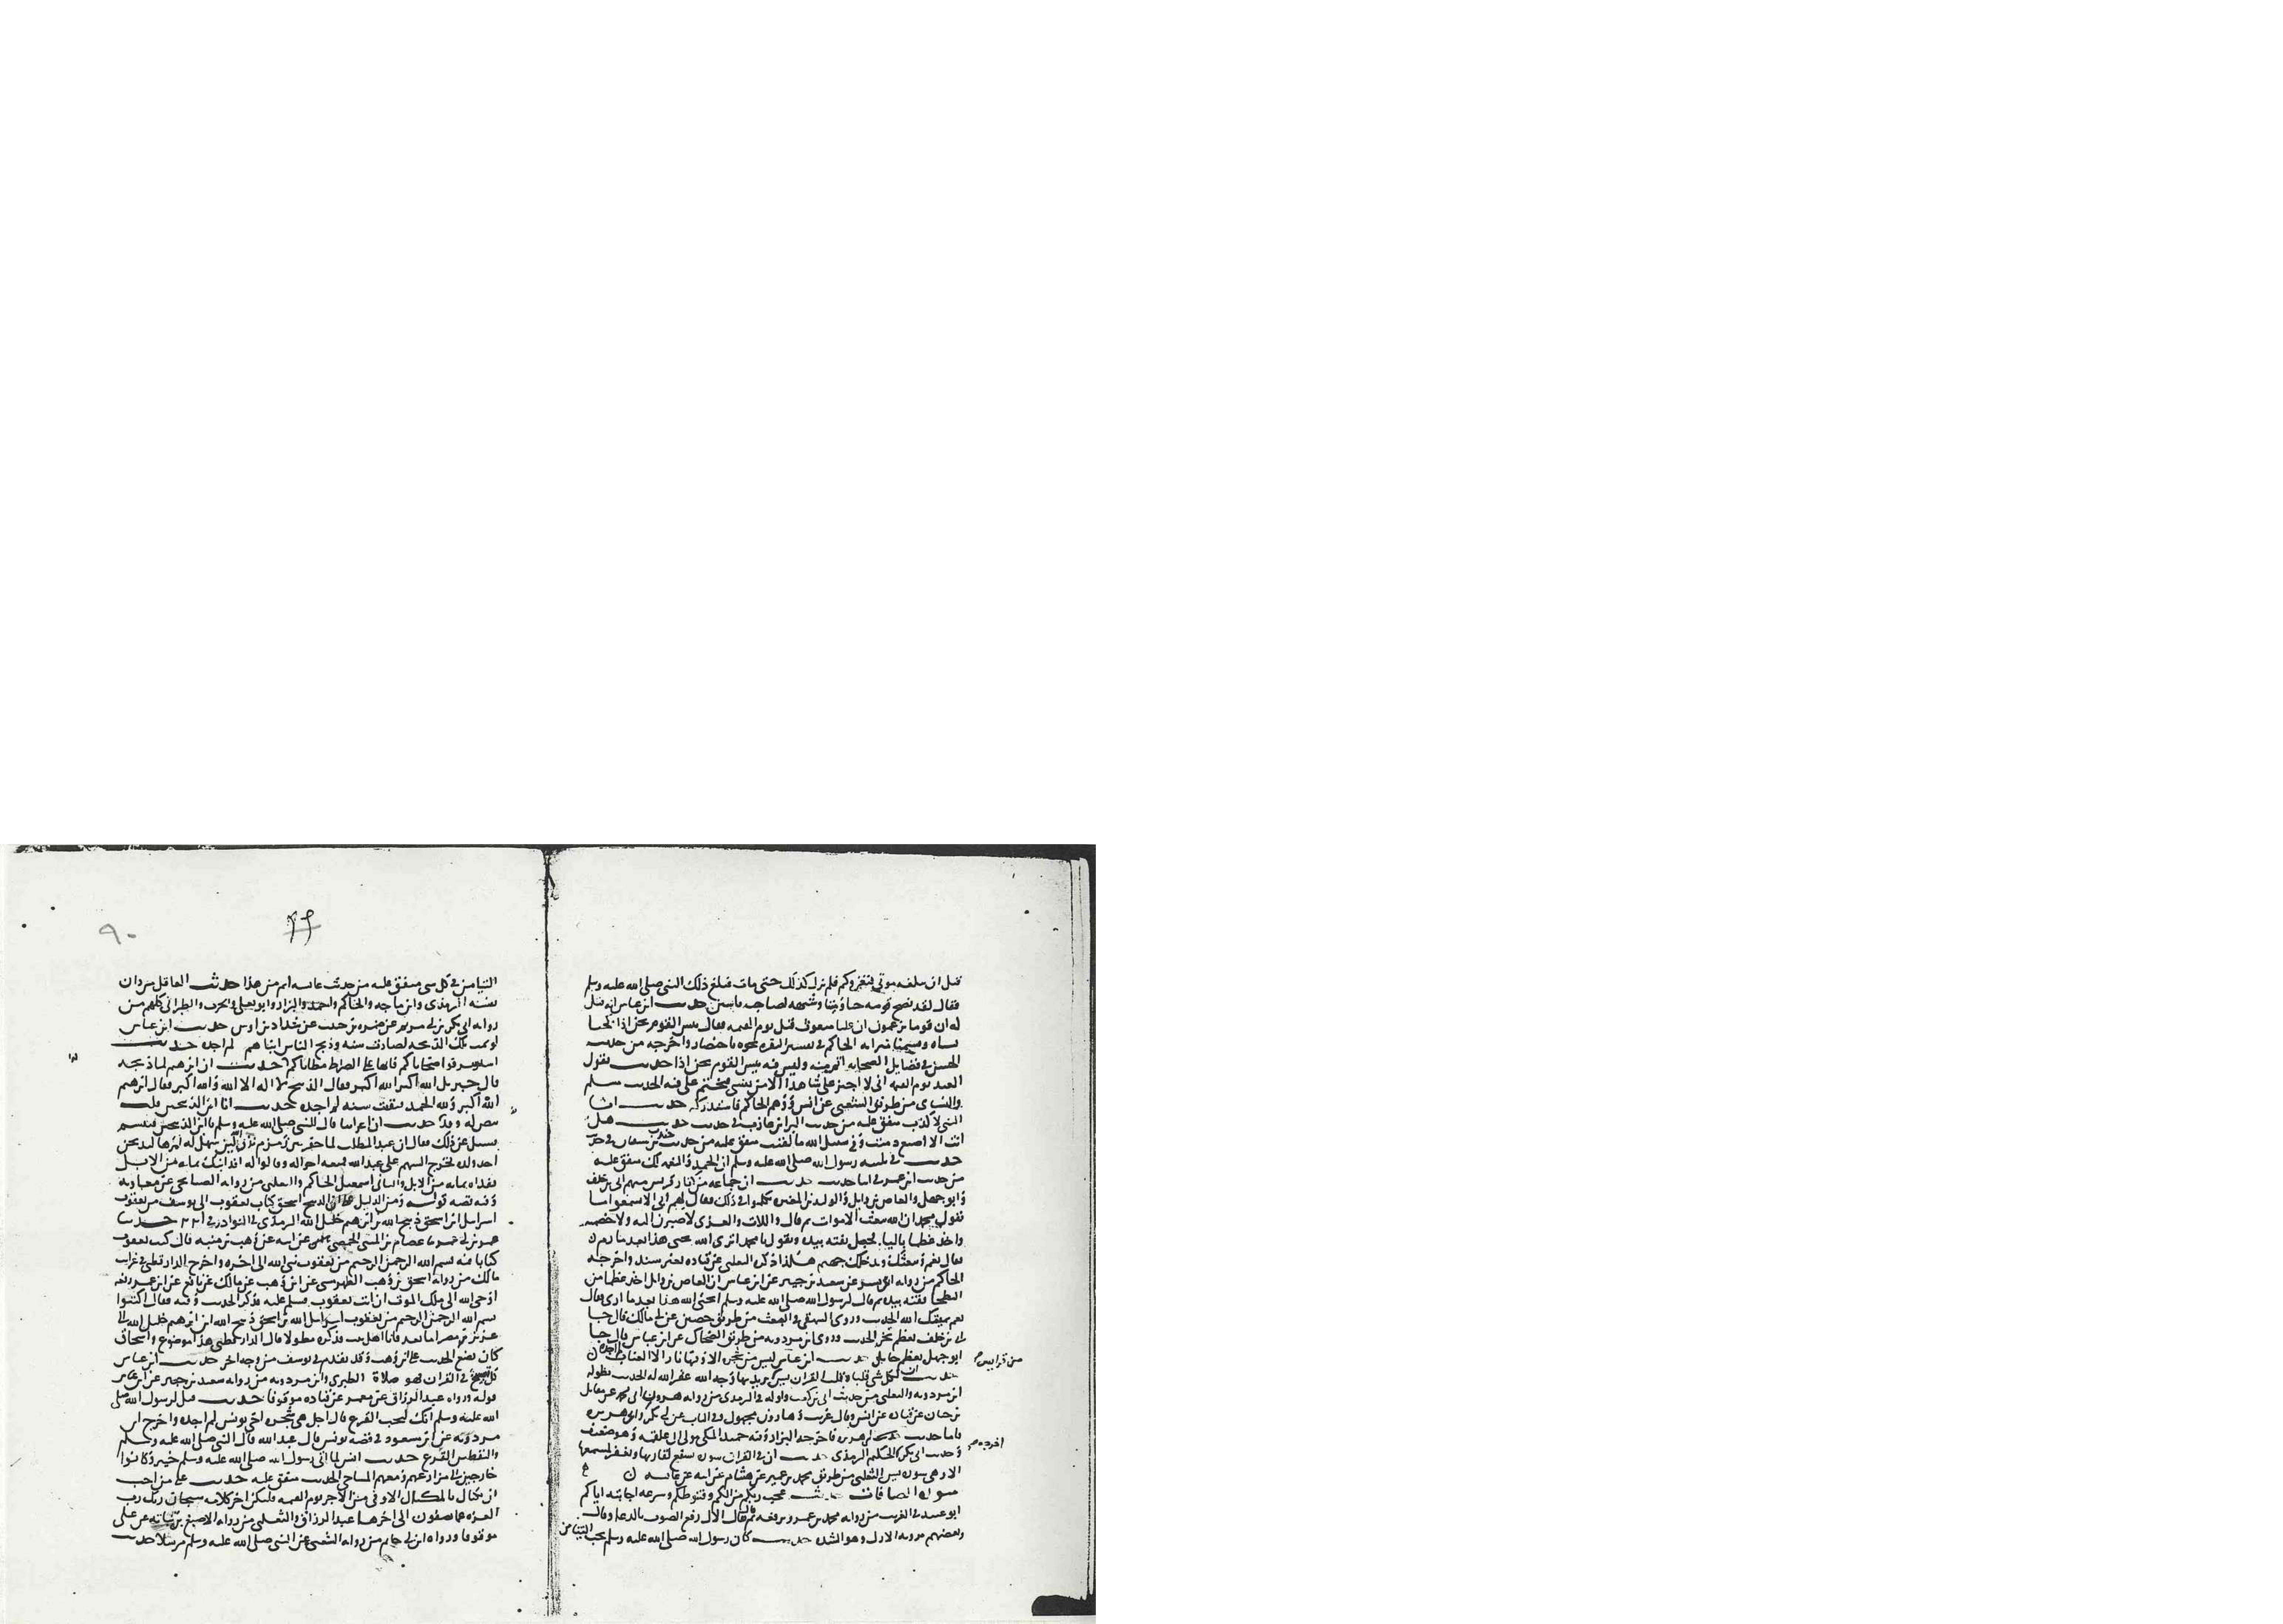 فقال لقد نصح قومه حيا وميتا وشبهه لصاحب ياسين حديث ابن عباس انه قيل
له ان قوما يزعمون ان عليا مبعوث قبل يوم القيمه فقال بيس القوم نحن اذا نكحنا
نساه وقسمنا ميراثه الحاكم في تفسير البقره نحوه باختصار واخرجه من حديث
الحسن في فضايل الصحابه وليس فيه بيس القوم نحن اذا حديث يقول
العبد يوم القيمه اني لا اجيز على شاهدا الا من نفسي فيختم على فيه الحديث مسلم
والنساي من طريق الشعبي عن انس ووهم الحاكم فاستدركه حديث انا
النبي لا كذب متفق عليه من حديث البرا بن عازب في حديث حديث هل
انت الا اصبع دميت وفي سبيل الله ما لقيت متفق عليه من حديث جندب بن سفيان
حديث في تلبيه رسول الله صلى الله عليه وسلم ان الحمد والنعمه لك متفق عليه
من حديث ابن عمر حديث ان جماعه من كفار قريش منهم ابي بن خلف
وابو جهل والعاص بن وايل والوليد بن المغيره تكلموا في ذلك فقال لهم ابي الا تسمعوا ما
يقول محمد ان الله يبعث الاموات ثم قال واللات والعزى لاصيرن اليه ولاخصمنه
واخذ عظما باليا فجعل يفته بيده ويقول يا محمد اترى الله يحيى هذا بعد ما رم
قال نعم ويبعثك ويدخلك جهنم هكذا ذكره الثعلبي عن قتاده بغير سند واخرجه
الحاكم من روايه ابي بشر عن سعيد بن جبير عن ابن عباس ان العاص بن وايل اخذ عظما من
البطحا ففته بيده ثم قال لرسول الله صلى الله عليه وسلم ايحيى الله هذا بعد ما ارى قال
نعم يميتك الله الحديث وروى البيهقي في البعث من طريق حصين عن ابي مالك قال جا
ابي بن خلف بعظم نخر الحديث وروى ابن مردويه من طريق الضحاك عن ابن عباس قال جا
ابو جهل بعظم حايل حديث ابن عباس ليس من شجره الا وفيها نار الا العناب
حديث ان لكل شي قلبا وقلب القران يس من قراها يريد بها وجه الله غفر الله له الحديث بطوله
ابن مردويه والثعلبي من حديث ابي بن كعب واوله في الترمذي من روايه هرون ابي محمد عن مقاتل
بن حيان عن قتاده عن انس وقال غريب وهارون مجهول وفي الباب عن ابي بكر وابي هريره
فاما حديث ابي هريره فاخرجه البزار وفيه حميد المكي مولى ال علقمه وهو ضعيف
وحديث ابي بكر الحكيم الترمذي حديث ان في القران سوره تشفع لقاريها وتغفر لمستمعها
الا وهي سوره يس الثعلبي من طريق محمد بن عمير عن هشام عن ابيه عن عايشه
سوره الصافات حديث عجب ربكم من الكم وقنوطكم وسرعه اجابته اياكم
ابو عبيد في الغريب من روايه محمد بن عمرو يرفعه ثم قال الال رفع الصوت بالدعا وقال
وبعضهم يرويه الازل وهو الشده حديث كان رسول الله صلى الله عليه وسلم يحب التيامن
اخرجه
٩٠
التيامن في كل شي متفق عليه من حديث عايشه اتم من هذا حديث العاقل من دان
نفسه الترمذي وابن ماجه والحاكم واحمد والبزار وابو يعلى والحرث والطبراني كلهم من
روايه ابي بكر بن ابي مريم عن ضمره بن حبيب عن شداد بن اوس حديث ابن عباس
لو تمت تلك الذبيحه لصارت سنه وذبح الناس ابناهم لم اجده حديث
استشرفوا ضحاياكم فانها على الصراط مطاياكم حديث ان ابرهيم لما ذبحه
قال جبريل الله اكبر الله اكبر فقال الذبيح لا اله الا الله والله اكبر فقال ابرهيم
الله اكبر ولله الحمد فبقيت سنه لم اجده حديث انا ابن الذبيحين
حديث ان اعرابيا قال للنبي صلى الله عليه وسلم يا ابن الذبيحين فتبسم
فسيل عن ذلك فقال ان عبد المطلب لما حفر بير زمزم نذر لله لين سهل له امرها ليذبحن
احد ولده فخرج السهم على عبد الله فمنعه اخواله وقالوا له افد ابنك بمايه من الابل
ففداه بمايه من الابل والثاني اسمعيل الحاكم والثعلبي من روايه الصنابحي عن معاويه
وفيه قصه قوله ومن الدليل على ان الذبيح اسحق كتاب يعقوب الى يوسف من يعقوب
اسرايل الله بن اسحق ذبيح الله بن ابرهيم خليل الله الترمذي في النوادر حدثنا
عمر بن ابي عمر ثنا عصام بن المثنى الحمصي عن ابيه عن وهب بن منبه قال كتب يعقوب
كتابا فيه بسم الله الرحمن الرحيم من يعقوب نبي الله الى اخره واخرج الدارقطني في غرايب
مالك من روايه اسحق بن وهب الطهرمسي عن ابن وهب عن مالك عن نافع عن ابن عمر رفعه
اوحى الله الى ملك الموت ان ات يعقوب فسلم عليه فذكر الحديث وفيه فقال اكتبوا
بسم الله الرحمن الرحيم من يعقوب اسرايل الله بن اسحق ذبيح الله ابن ابرهيم خليل الله الى
عزيز مصر اما بعد فانا اهل بيت فذكره مطولا قال الدارقطني هذا موضوع واسحاق
كان يضع الحديث على ابن وهب وقد تقدم في يوسف من وجه اخر حديث ابن عباس
كل تسبيح في القران فهو صلاة الطبري وابن مردويه من روايه سعيد بن جبير عن ابن عباس
قوله ورواه عبد الرزاق عن معمر عن قتاده موقوفا حديث قيل لرسول الله صلى
الله عليه وسلم انك لتحب القرع قال اجل هي شجره اخي يونس لم اجده واخرج ابن
مردويه عن ابن مسعود في قصه يونس قال عبد الله قال النبي صلى الله عليه وسلم
واليقطين القرع حديث انس لما اتى رسول الله صلى الله عليه وسلم خيبر وكانوا
خارجين الى مزارعهم ومعهم المساحي الحديث متفق عليه حديث علي من احب
ان يكتال بالمكيال الاوفى من الاجر يوم القيمه فليكن اخر كلامه سبحان ربك رب
العزه عما يصفون الى اخرها عبد الرزاق والثعلبي من روايه الاصبغ بن نباته عن علي
موقوفا ورواه ابن ابي حاتم من روايه الشعبي عن النبي صلى الله عليه وسلم مرسلا حديث